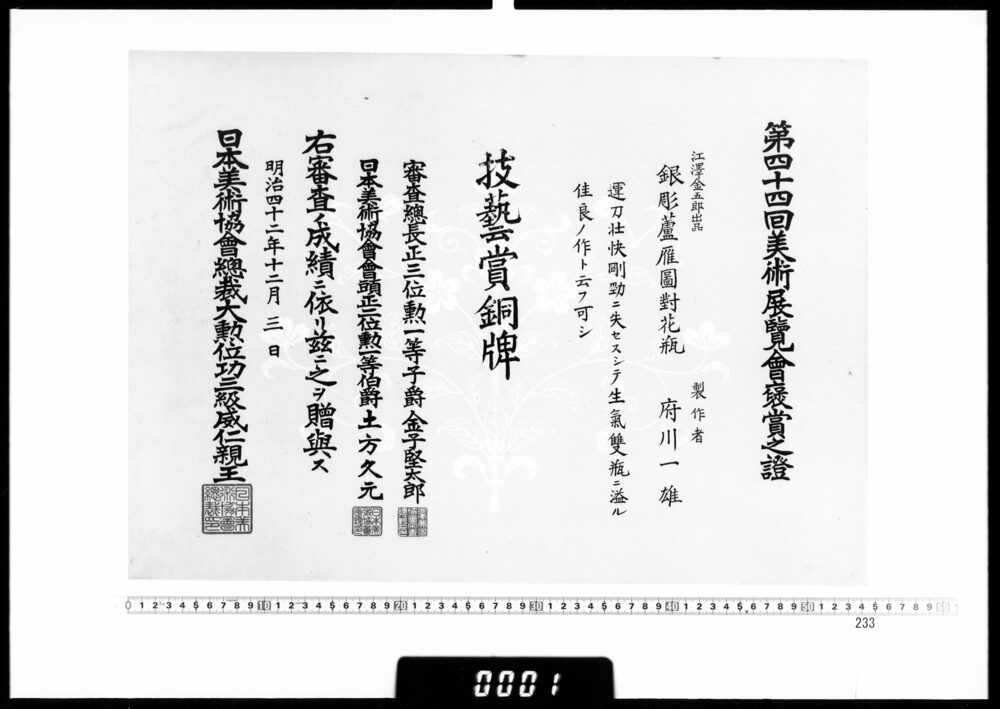 第四十四回美術展覽會褒賞之證
江澤金五郎出品
銀彫蘆雁圖對花瓶
製作者
府川一雄
運刀壯快剛勁ニ失セスシテ生氣雙瓶ニ溢ル
佳良ノ作ト云フ可シ
技藝賞銅牌
審査總長正三位勲一等子爵金子堅太郎
日本美術協會會頭正二位勲一等伯爵土方久元
右審査ノ成績ニ依リ茲ニ之ヲ贈與ス
明治四十二年十二月三日
日本美術協會總裁大勲位功三級威仁親王
日本美術協會總裁印
0 1 2 3 4 5 6 7 8 9 10 1 2 3 4 5 6 7 8 9 20 1 2 3 4 5 6 7 8 9 30 1 2 3 4 5 6 7 8 9 40 1 2 3 4 5 6 7 8 9 50 1 2 3 4 5 6 7 8 9 60
233
0001